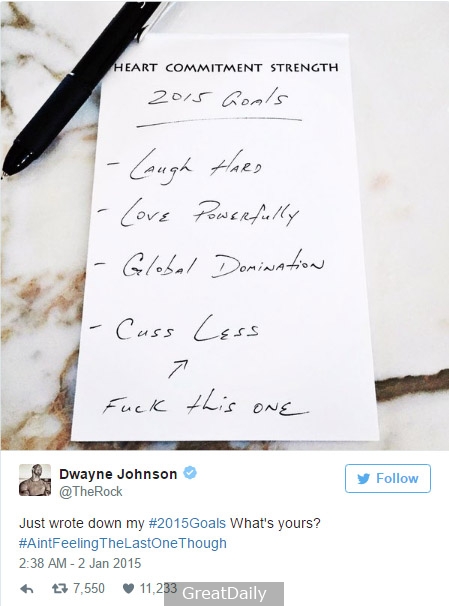 HEART COMMITMENT STRENGTH
2015 Goals
- Laugh Hard
- Love Powerfully
- Global Domination
- Cuss Less
↗
Fuck this one
Dwayne Johnson
@TheRock
Follow
Just wrote down my #2015Goals What's yours?
#AintFeelingTheLastOneThough
2:38 AM - 2 Jan 2015
7,550 11,233
GreatDaily